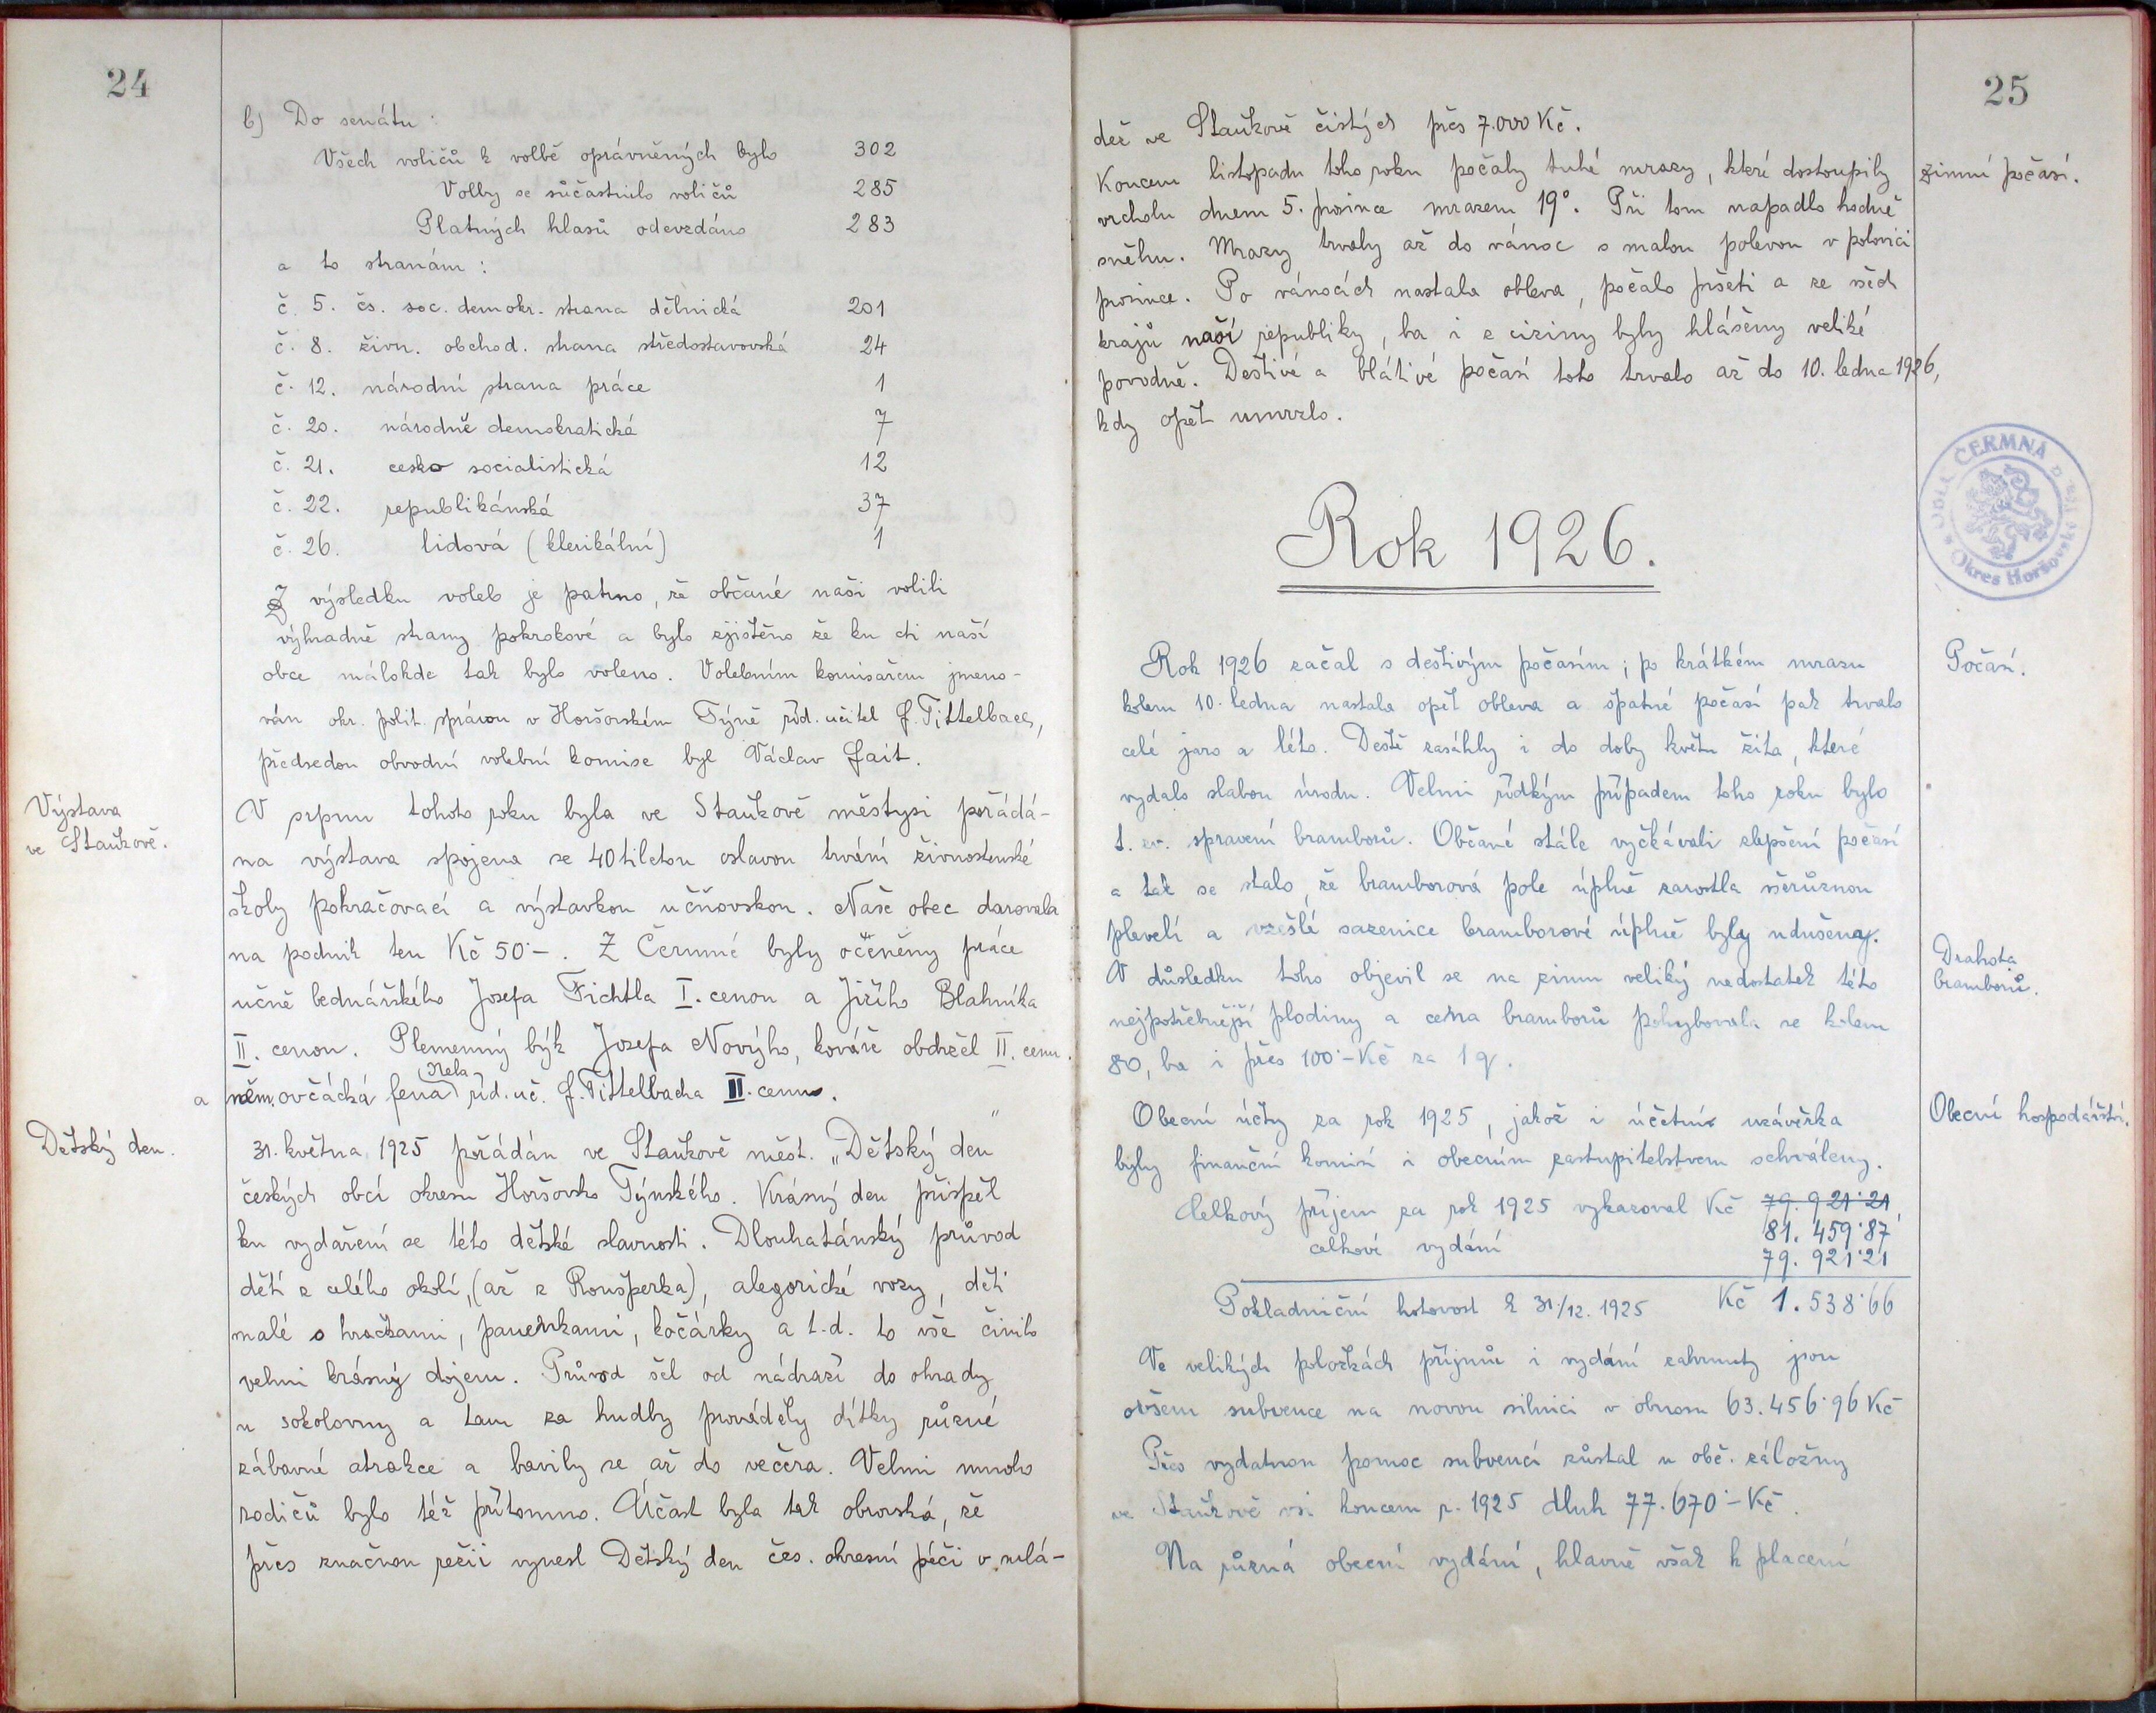 24
b) Do senátu:
Všech voličů k volbě oprávněných bylo 302
Volby se súčastnilo voličů 285
Platných hlasů odevzdáno 283
a to stranám:
č. 5. čs. soc. demokr. strana dělnická 201
č. 8. živn. obchod. strana středostavovská 24
č. 12. národní strana práce 1
č. 20. národně demokratická 7
č. 21. česko socialistická 12
č. 22. republikánská 37
č. 26. lidová (klerikální) 1
Z výsledku voleb je patrno, že občané naši volili
výhradně strany pokrokové a bylo zjištěno že ku cti naší
obce málokde tak bylo voleno. Volebním komisařem jmeno-
ván okr. polit. správou v Horšovském Týně říd. učitel J. Tittelbach,
předsedou obvodní volební komise byl Václav Jait.
Výstava
ve Staňkově.
V srpnu tohoto roku byla ve Staňkově městysi pořádá-
na výstava spojena se 40tiletou oslavou trvání živnostenské
školy pokračovací a výstavkou učňovskou. Naše obec darovala
na podnik ten Kč 50·-. Z Čermné byly oceněny práce
učně bednářského Josefa Fichtla I. cenou a Jiřího Blahníka
II. cenou. Plemenný býk Josefa Novýho, kováře obdržel II. cenu.
a něm. ovčácká fena Nela říd. uč. J. Tittelbacha II. cenu.
Dětský den.
31. května 1925 pořádán ve Staňkově měst. „Dětský den"
českých obcí okresu Horšovsko Týnského. Krásný den přispěl
ku vydaření se této dětské slavnosti. Dlouhatánský průvod
dětí z celého okolí, (až z Ronšperka), alegorické vozy, děti
malé s hračkami, panenkami, kočárky a t.d. to vše činilo
velmi krásný dojem. Průvod šel od nádraží do ohrady
u sokolovny a tam za hudby prováděly dítky různé
zábavné atrakce a bavily se až do večera. Velmi mnoho
rodičů bylo též přítomno. Účast byla tak obrovská, že
přes značnou režii vynesl Dětský den čes. okresní péči o mlá-
25
dež ve Staňkově čistých přes 7.000 Kč.
Koncem listopadu toho roku počaly tuhé mrazy, které dostoupily
zimní počasí.
vrcholu dnem 5. prosince mrazem 19°. Při tom napadlo hodně
sněhu. Mrazy trvaly až do vánoc s malou polevou v polovici
prosince. Po vánocích nastala obleva, počalo pršeti a ze všech
krajů naší republiky, ba i z ciziny byly hlášeny veliké
povodně. Deštivé a blátivé počasí toto trvalo až do 10. ledna 1926,
kdy opět umrzlo.
OBEC ČERMNÁ
Okres Horšovský
Rok 1926.
Počasí.
Rok 1926 začal s deštivým počasím; po krátkém mrazu
kolem 10. ledna nastala opět obleva a špatné počasí pak trvalo
celé jaro a léto. Deště zasáhly i do doby květu žita, které
vydalo slabou úrodu. Velmi řídkým případem toho roku bylo
t. zv. spravení bramborů. Občané stále vyčkávali zlepšení počasí
a tak se stalo, že bramborová pole úplně zarostla všerůznou
plevelí a vzešlé sazenice bramborové úplně byly udušeny.
Drahota
bramborů.
V důsledku toho objevil se na zimu veliký nedostatek této
nejpotřebnější plodiny a cena bramborů pohybovala se kolem
80, ba i přes 100·- Kč za 1 q.
Obecní hospodářství.
Obecní účty za rok 1925, jakož i účetní uzávěrka
byly finanční komisí i obecním zastupitelstvem schváleny.
Celkový příjem za rok 1925 vykazoval Kč 79.921·21
81.459·87
celkové vydání 79.921·21
Pokladniční hotovost k 31/12. 1925 Kč 1.538·66
Ve velikých položkách příjmů i vydání zahrnuty jsou
ovšem subvence na novou silnici v obnosu 63.456·96 Kč
Přes vydatnou pomoc subvencí zůstal u obč. záložny
ve Staňkově vsi koncem r. 1925 dluh 77.670·- Kč.
Na různá obecní vydání, hlavně však k placení